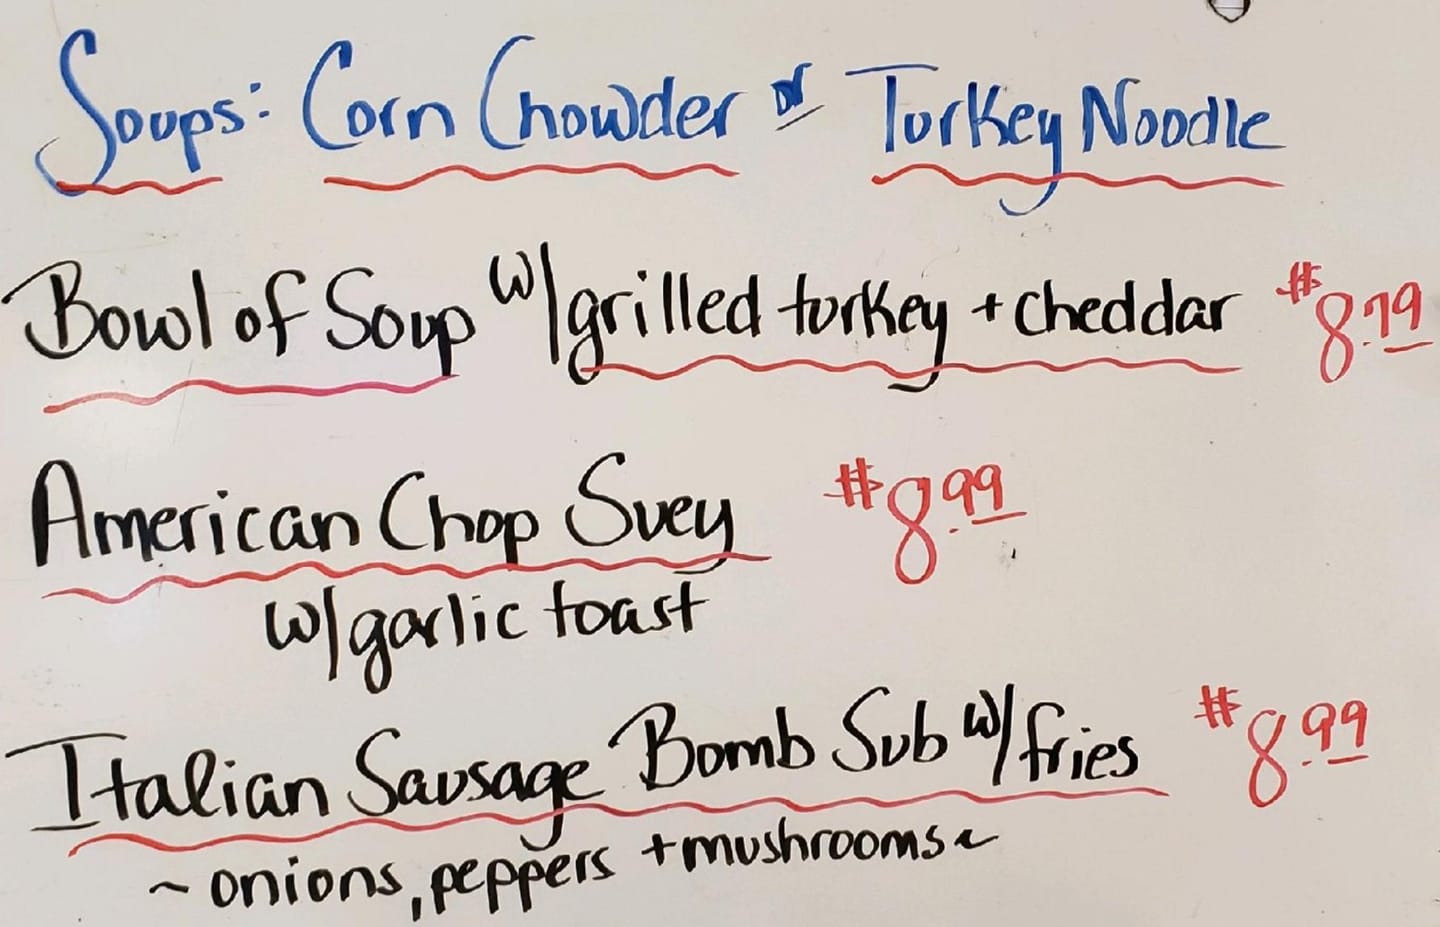 Soups: Corn Chowder or Turkey Noodle
Bowl of Soup w/grilled turkey + cheddar $8.79
American Chop Suey $8.99
w/garlic toast
Italian Sausage Bomb Sub w/fries $8.99
~ onions, peppers + mushrooms ~